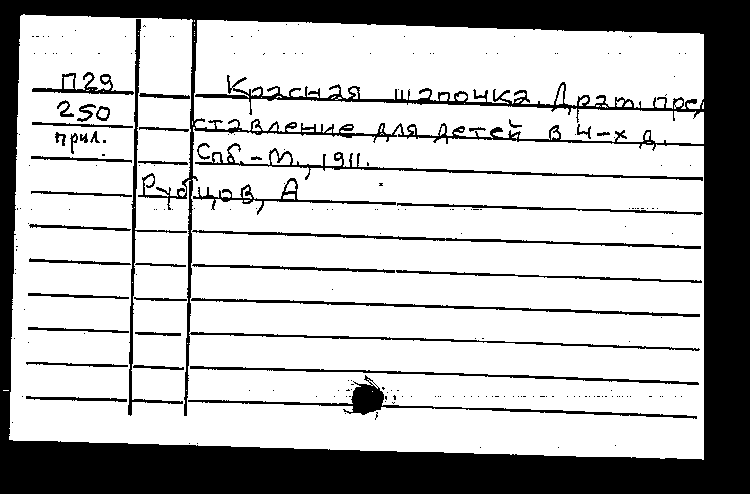 П29
250
прил.
Красная шапочка. Драт. пред
ставление для детей в 4-х д.
Спб.-М., 1911.
Рубцов, А